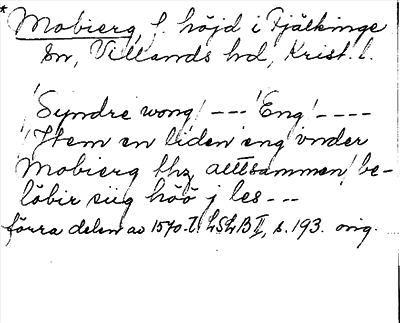 * Mobierg, f. höjd i Fjälkinge
sn, Villands hd, Krist. l.
'Syndre wong' --- 'Eng' ----
'Jtem en liden eng vnder
Mobierg thz alttsammen' be-
löbir siig höö j les ---
förra delen av 1570-t. LSLB II, s. 193. orig.